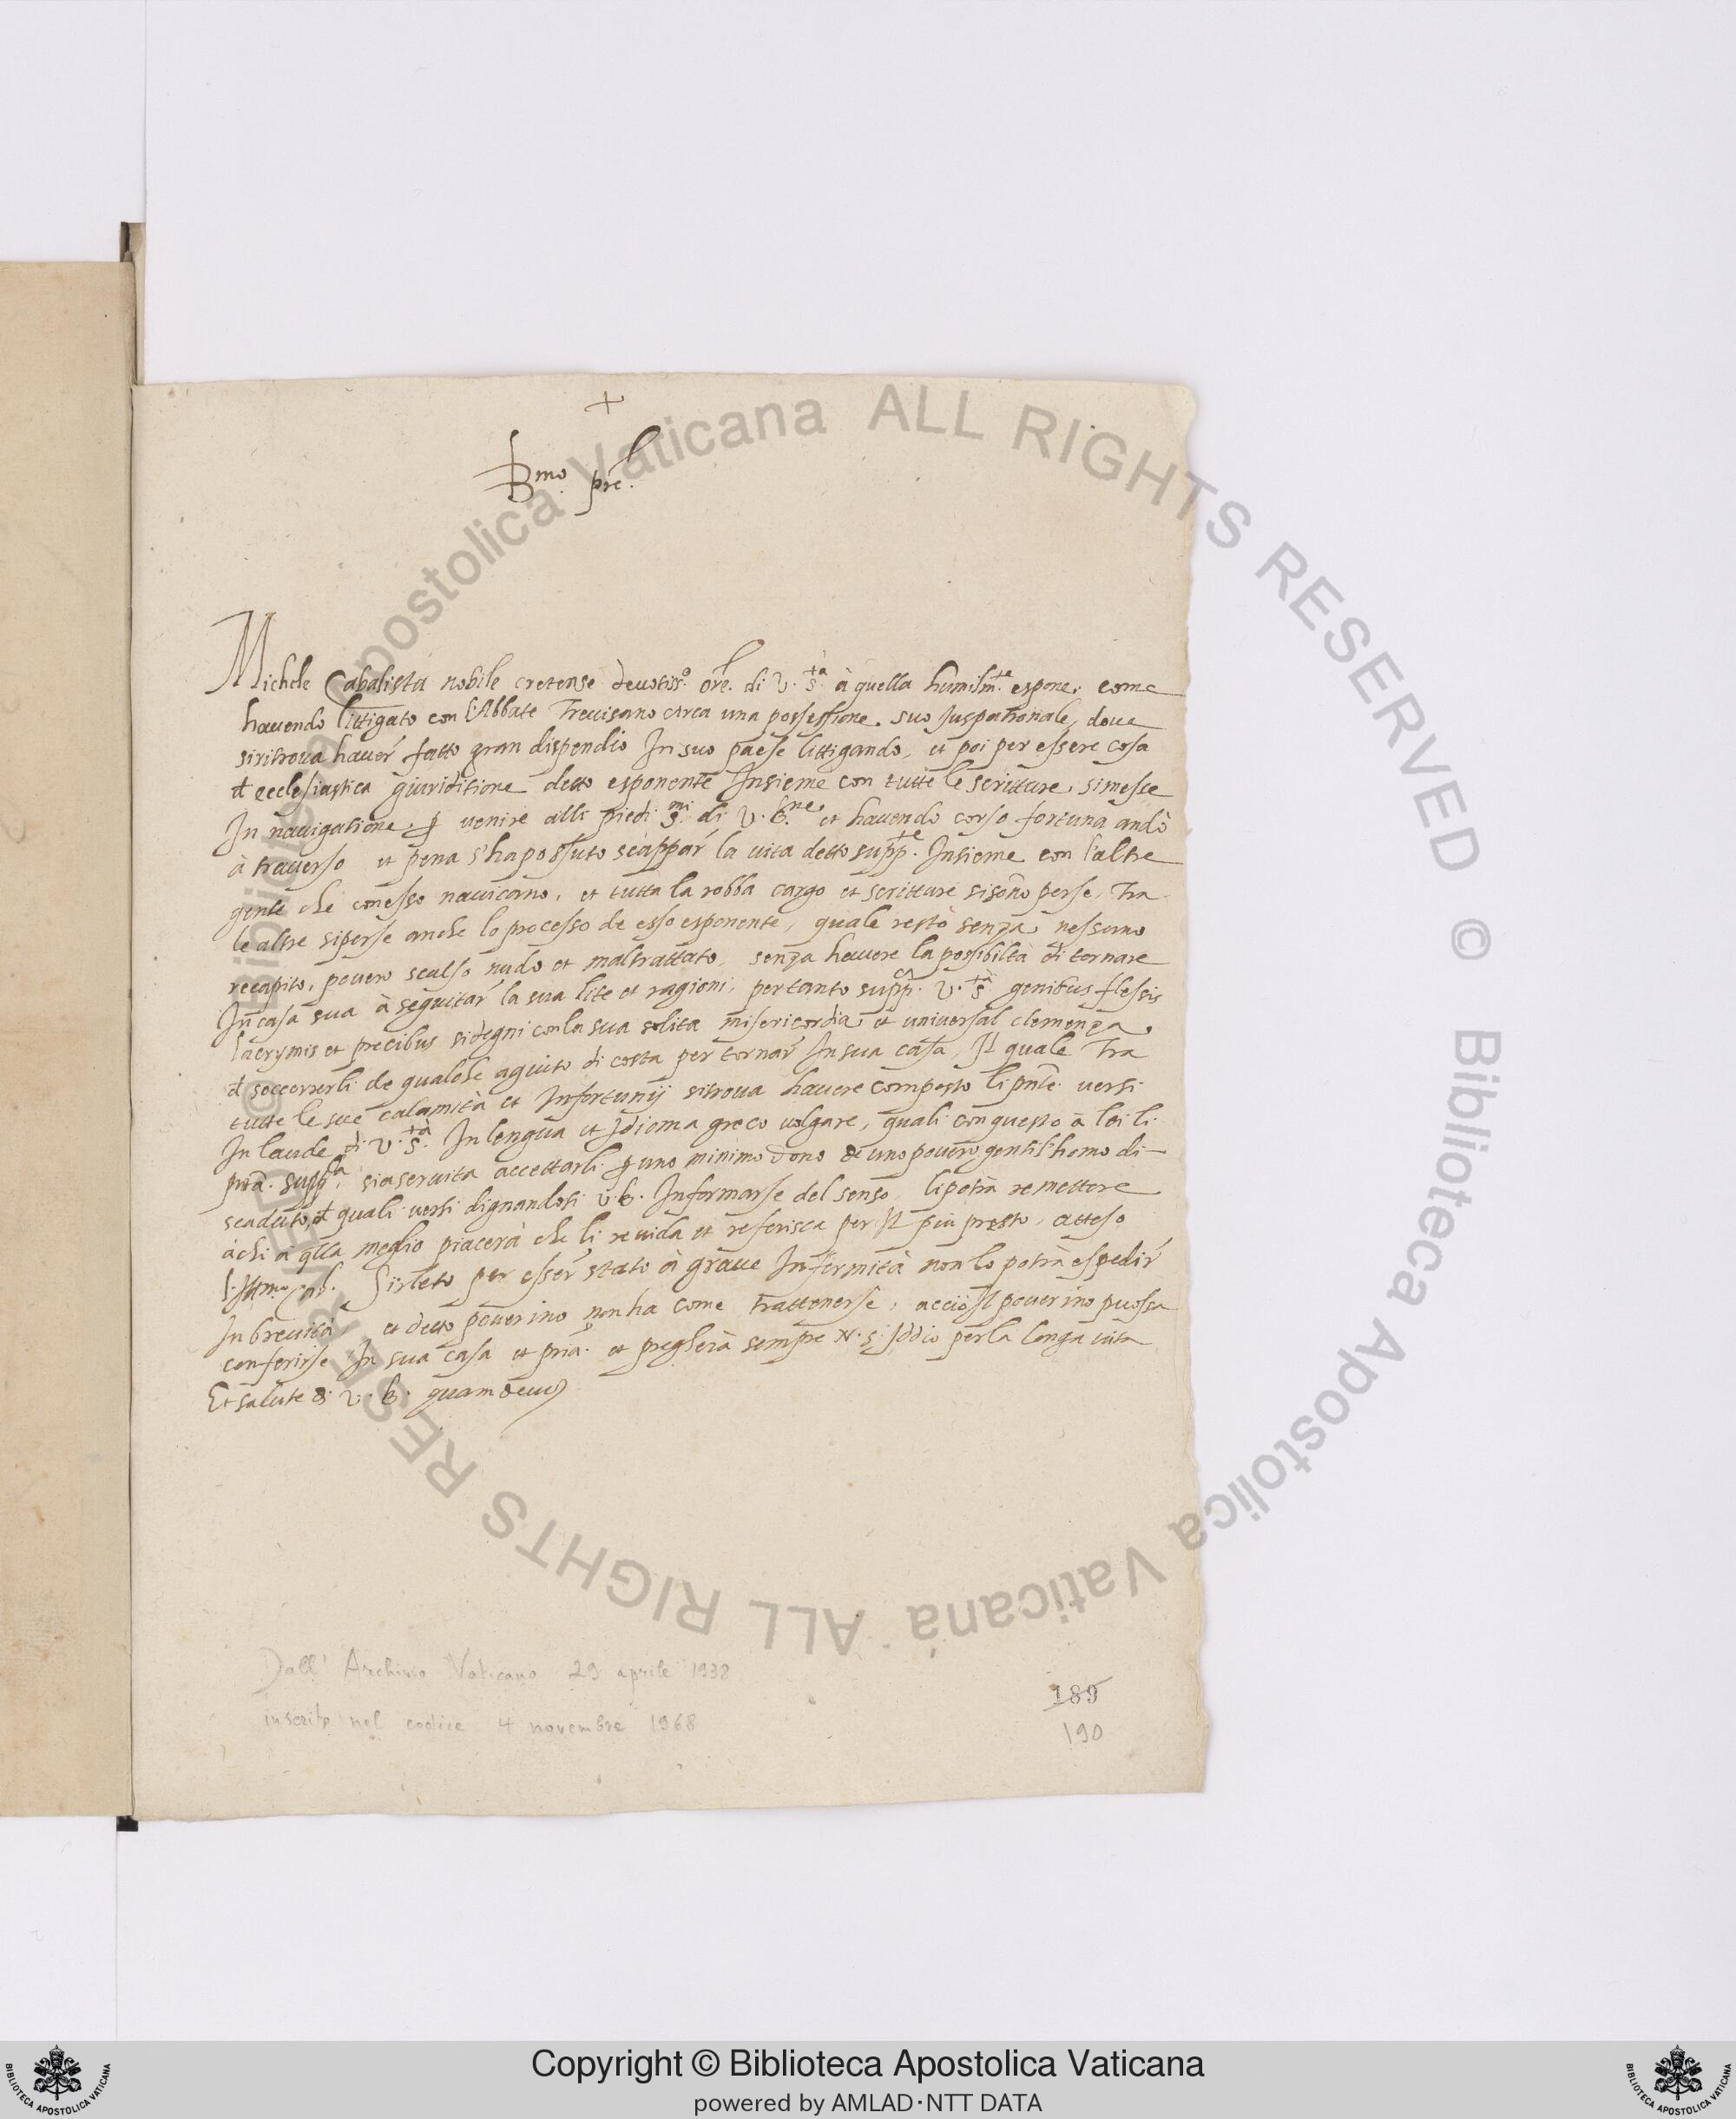 +
Bmo. pre.
Michele Cabalista nobile cretense deuotiss.o ore. di V. S.tà à quella humilm.te espone, come
hauendo littigato con l'Abbate Treuisano circa una possessione. suo Juspatronale, doue
siritroua hauer fatto gran dispendio In suo paese littigando, et poi per essere cosa
d ecclesiastica giuriditione detto esponente Insieme con tutte le scritture, simesse
In nauigatione, p venire alli piedi S.mi di V. B.ne et hauendo corso fortuna andò
à trauerso et pena s'hapossuto scappar la uita detto supp.te Insieme con l'altre
gente che conesso nauicorno, et tutta la robba cargo et scritture sisono perse, Tra
le altre siperse anche lo processo de esso esponente, quale restò senza nessuno
recapito, pouero scalso nudo et maltrattato, senza hauere la possibilta di tornare
In casa sua à seguitar la sua lite et ragioni, per tanto supp.ca V. S.tà genibus flessis
lacrymis et precibus sidegni conla sua solita misericordia et universal clemenza
d soccorrerli de qualche agiuto di costa per tornar In sua casa, Il quale Tra
tutte le sue calamità et Infortunij sitroua hauere composto li pnte. versi
In laude di V. S.tà In lengua et Idioma greco volgare, quali con questo à lei li
pnta. supp.ta siaseruita accettarli p uno minimo dono de uno pouero gentilhomo di-
scaduto, d quali uersi dignandosi V. B. Informarse del senso, lipotrà remettere
àchi à qlla meglio piacerà che li reuida et referisca per Il piu presto, atteso
l'Illmo. Sirleto per esser stato à graue Infermità non lo potrà espedir
In breuità, et detto pouerino non ha come trattenerse, acciò Il pouerino puossa
conferirse In sua casa et pria. et pregherà sempre N. S. Iddio perla longa uita
Et salute di V. B. quam deus
Dall' Archivio Vaticano 29 aprile 1938
inserito nel codice 4 novembre 1968
189
190
© Biblioteca Apostolica Vaticana ALL RIGHTS RESERVED © Biblioteca Apostolica Vaticana ALL RIGHTS RESERVED
Copyright © Biblioteca Apostolica Vaticana
powered by AMLAD·NTT DATA
BIBLIOTECA APOSTOLICA VATICANA
BIBLIOTECA APOSTOLICA VATICANA